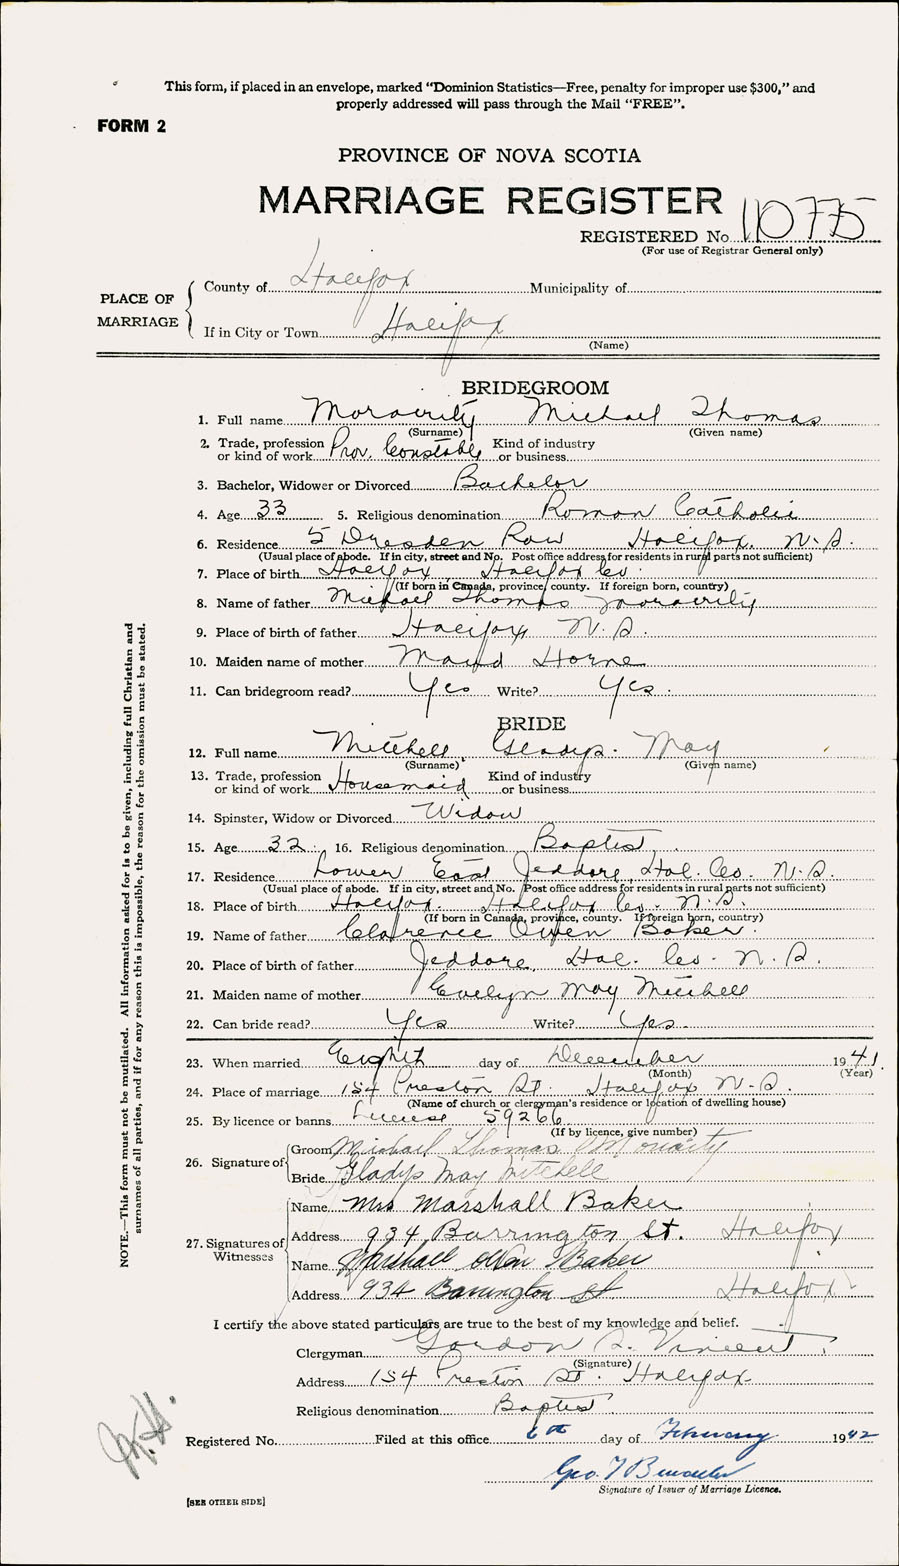 This form, if placed in an envelope, marked "Dominion Statistics—Free, penalty for improper use $300," and
properly addressed will pass through the Mail "FREE".
FORM 2
PROVINCE OF NOVA SCOTIA
MARRIAGE REGISTER
REGISTERED No. 110775
(For use of Registrar General only)
PLACE OF MARRIAGE
County of Halifax Municipality of
If in City or Town Halifax
(Name)
BRIDEGROOM
1. Full name Moraerity Michael Thomas
(Surname) (Given name)
2. Trade, profession or kind of work Prov. Constable Kind of industry or business
3. Bachelor, Widower or Divorced Bachelor
4. Age 33 5. Religious denomination Roman Catholic
6. Residence 5 Dresden Row Halifax, N.S.
(Usual place of abode. If in city, street and No. Post office address for residents in rural parts not sufficient)
7. Place of birth Halifax Halifax Co.
(If born in Canada, province, county. If foreign born, country)
8. Name of father Michael Thomas Moraerity
9. Place of birth of father Halifax N.S.
10. Maiden name of mother Maud Horne
11. Can bridegroom read? Yes Write? Yes.
BRIDE
12. Full name Mitchell Gladys. May
(Surname) (Given name)
13. Trade, profession or kind of work Housemaid Kind of industry or business
14. Spinster, Widow or Divorced Widow
15. Age 32 16. Religious denomination Baptist
17. Residence Lower East Jeddore Hal. Co. N.S.
(Usual place of abode. If in city, street and No. Post office address for residents in rural parts not sufficient)
18. Place of birth Halifax. Halifax Co. N.S.
(If born in Canada, province, county. If foreign born, country)
19. Name of father Clarence Owen Baker.
20. Place of birth of father Jeddore, Hal. Co. N.S.
21. Maiden name of mother Evelyn May Mitchell
22. Can bride read? Yes Write? Yes.
23. When married Eighth day of December 1941.
(Month) (Year)
24. Place of marriage 154 Preston St. Halifax N.S.
(Name of church or clergyman's residence or location of dwelling house)
25. By licence or banns License 59266
(If by licence, give number)
26. Signature of
Groom Michael Thomas Moriarty
Bride Gladys May Mitchell
27. Signatures of Witnesses
Name Mrs Marshall Baker
Address 934 Barrington St. Halifax
Name Marshall Owen Baker
Address 934 Barrington St Halifax
I certify the above stated particulars are true to the best of my knowledge and belief.
Clergyman Gordon R. Vincent.
(Signature)
Address 154 Preston St. Halifax
Religious denomination Baptist
Registered No. Filed at this office 6th day of February 1942
Geo. T
Signature of Issuer of Marriage Licence.
[SEE OTHER SIDE]
NOTE.—This form must not be mutilated. All information asked for is to be given, including full Christian and
surnames of all parties, and if for any reason this is impossible, the reason for the omission must be stated.